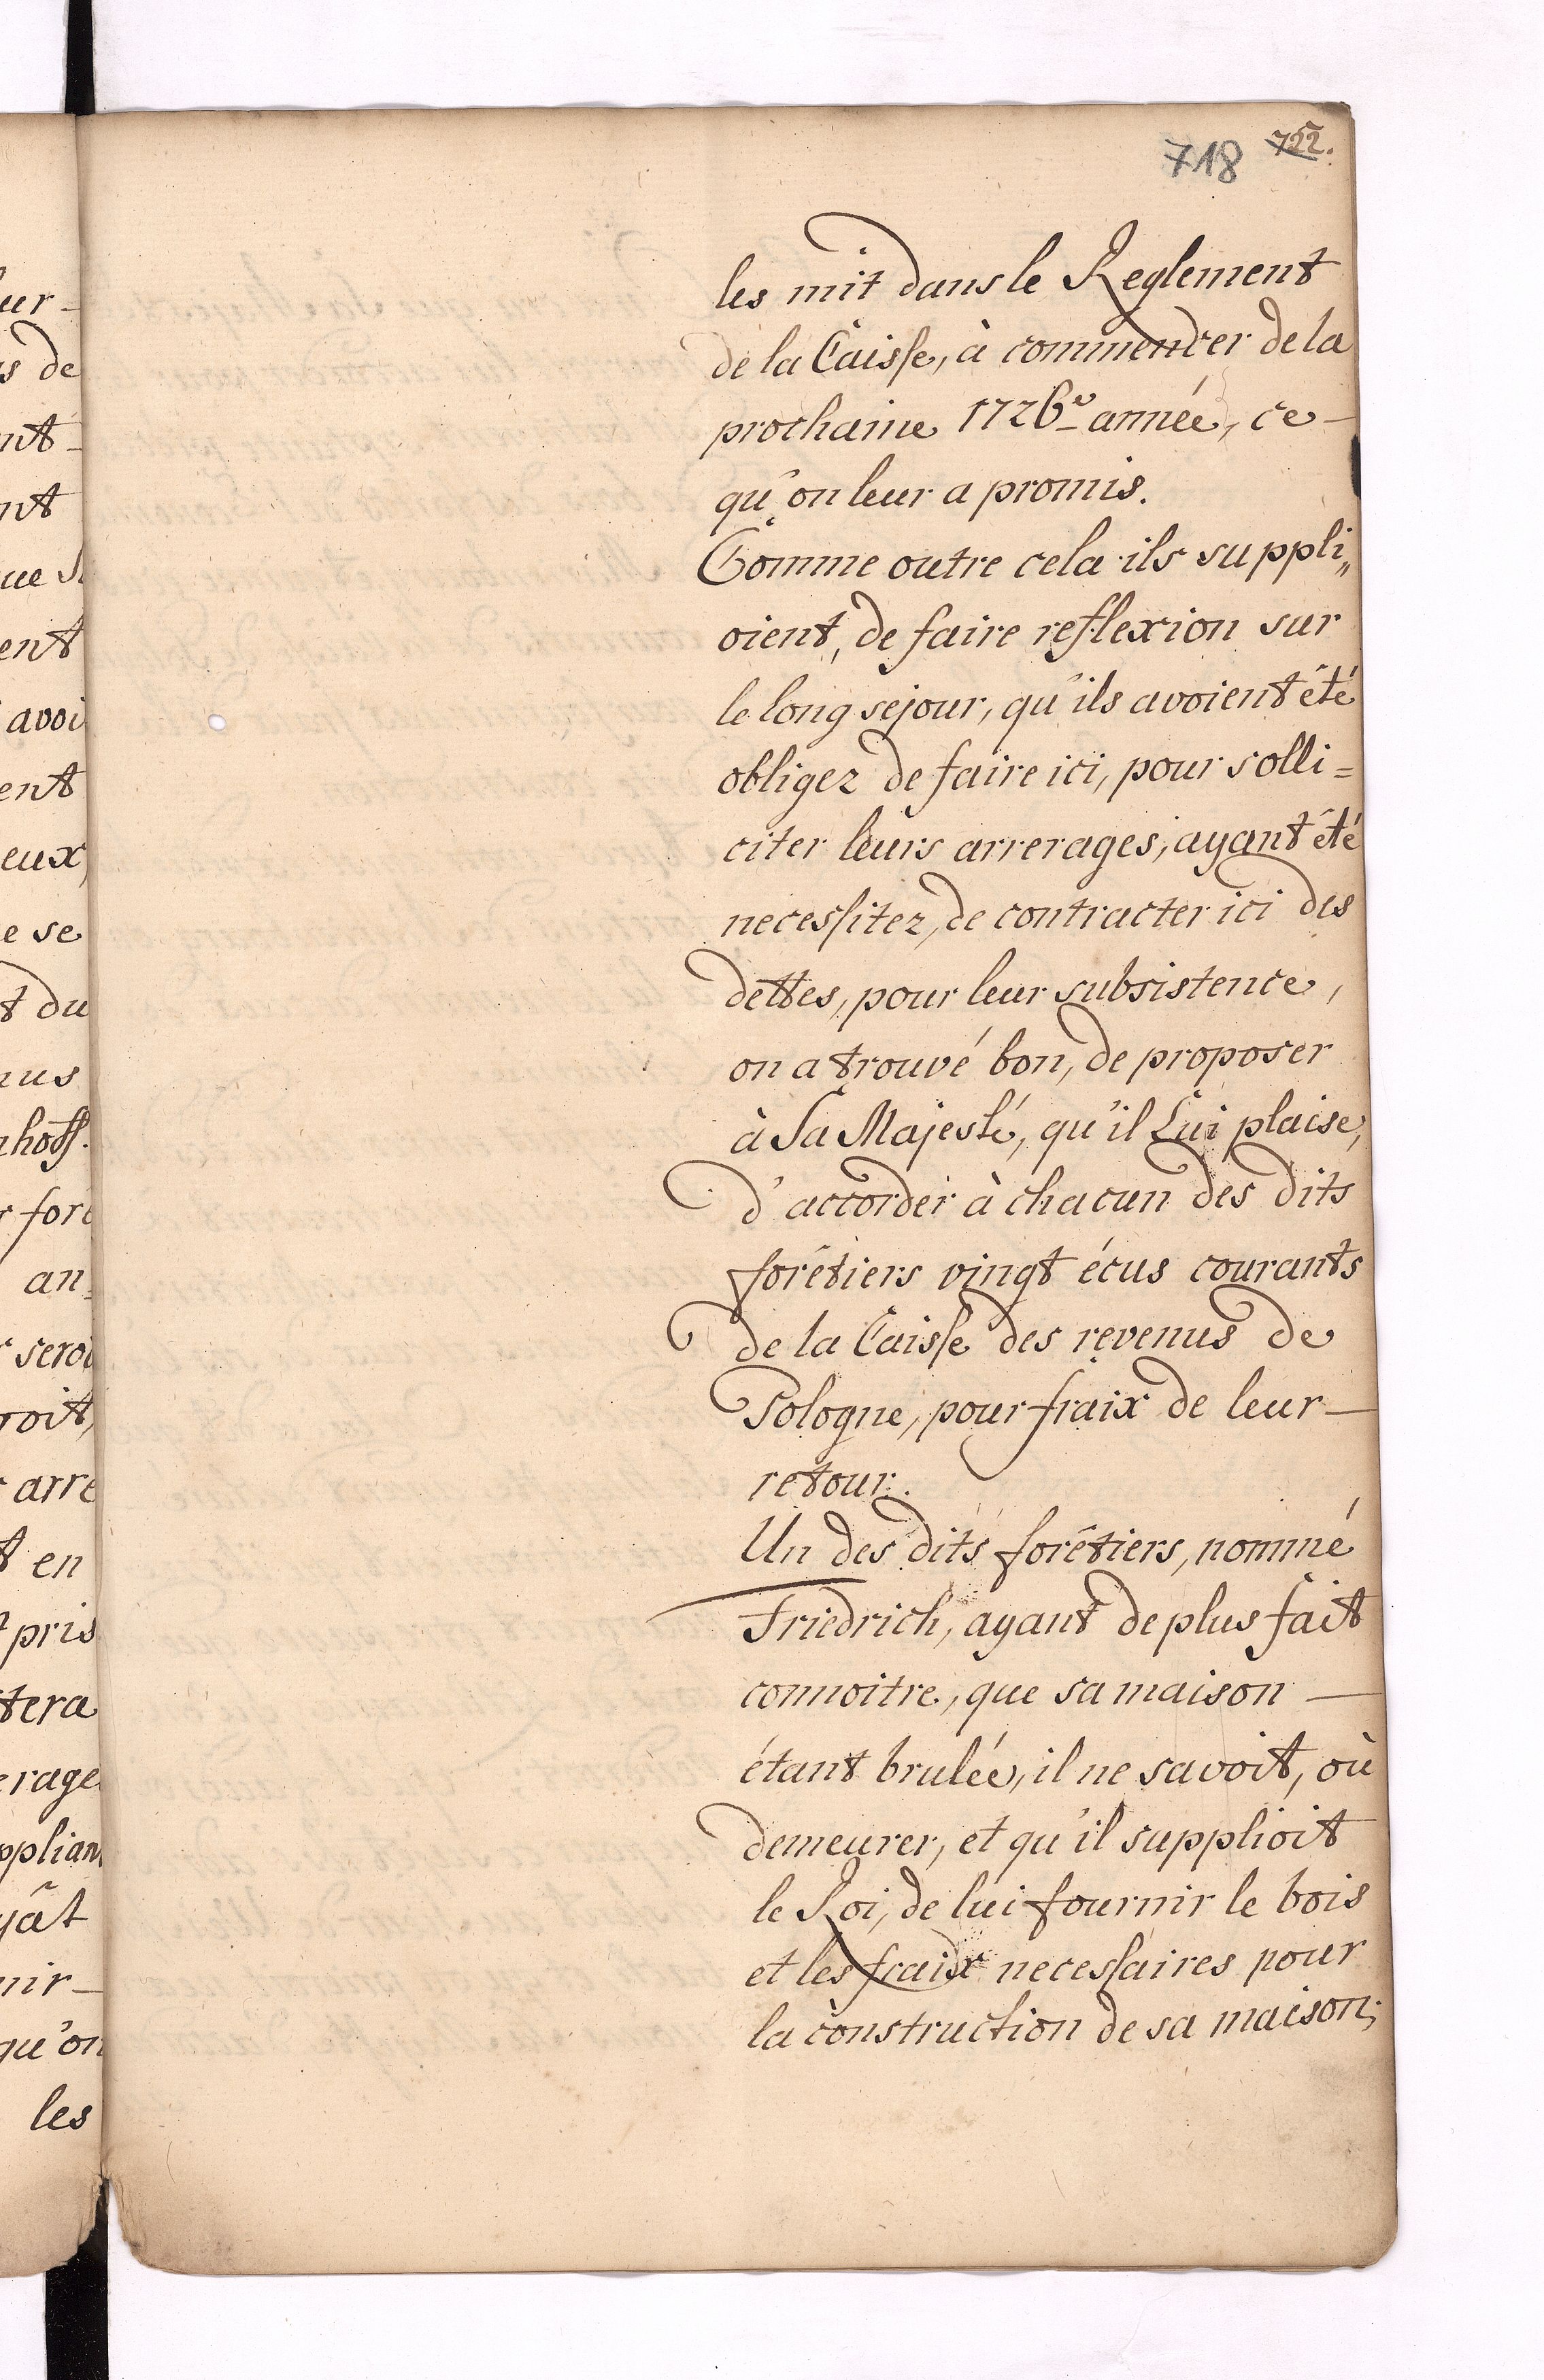 718 752.
les mit dans le Reglement
de la Caisse, à commencer de la
prochaine 1726e année, ce
qu'on leur a promis.
Comme outre cela ils suppli„
oient, de faire reflexion sur
le long sejour, qu'ils avoient été
obligez de faire ici, pour solli=
citer leurs arrerages, ayant été
necessitez, de contracter ici des
dettes, pour leur subsistence,
on a trouvé bon, de proposer
à Sa Majesté, qu'il Lui plaise,
d'accorder à chacun des dits
forêtiers vingt écus courants
de la Caisse des revenus de
Pologne, pour fraix de leur
retour.
Un des dits forêtiers, nommé
Friedrich, ayant de plus fait
connoitre, que sa maison
étant brulée, il ne savoit, où
demeurer, et qu'il supplioit
le Roi, de lui fournir le bois
et les fraix necessaires pour
la construction de sa maison;